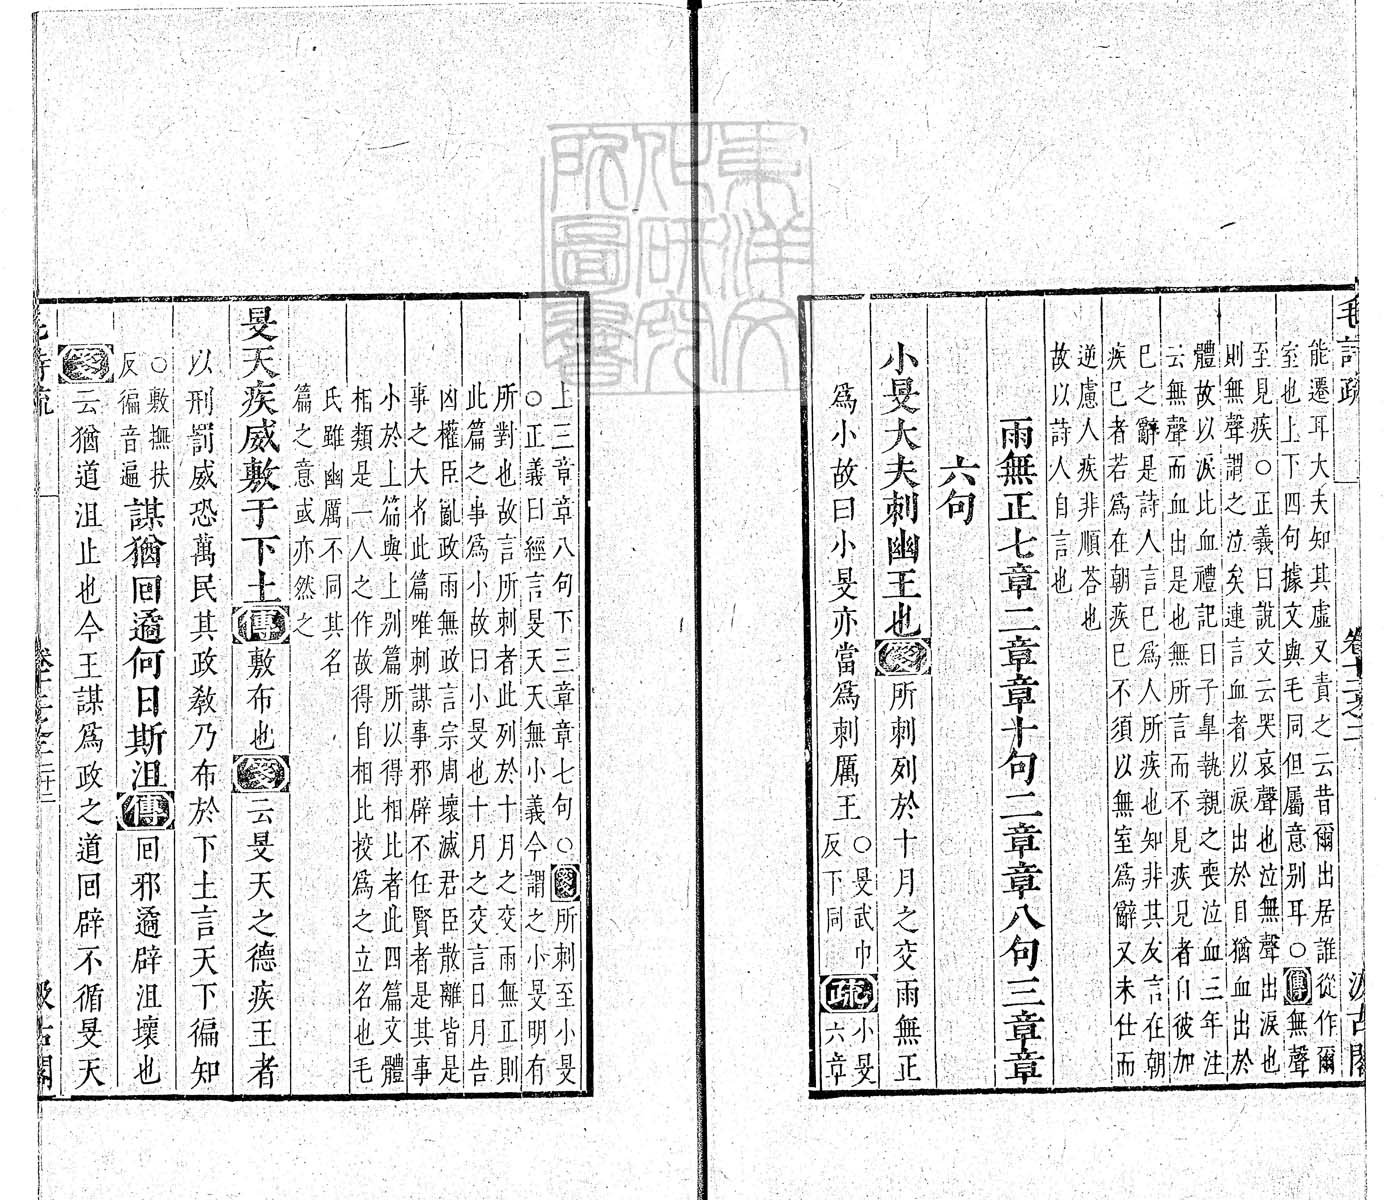 毛詩疏
卷十二之二
汲古閣
能遷耳大夫知其虛又責之云昔爾出居誰從作爾
室也上下四句據文與毛同但屬意别耳○傳無聲
至見疾○正義曰說文云哭哀聲也泣無聲出淚也
則無聲謂之泣矣連言血者以淚出於目猶血出於
體故以淚比血禮記曰子臯執親之喪泣血三年注
云無聲而血出是也無所言而不見疾見者自彼加
巳之辭是詩人言巳爲人所疾也知非其友言在朝
疾巳者若爲在朝疾巳不須以無室爲辭又未仕而
逆慮人疾非順荅也
故以詩人自言也
雨無正七章二章章十句二章章八句三章章
六句
小旻大夫刺幽王也箋所刺列於十月之交雨無正
爲小故曰小旻亦當爲刺厲王○旻武巾
反下同疏小旻
六章
上三章章八句下三章章七句○箋所刺至小旻
○正義曰經言旻天天無小義今謂之小旻明有
所對也故言所刺者此列於十月之交雨無正則
此篇之事爲小故曰小旻也十月之交言日月告
凶權臣亂政雨無政言宗周壞滅君臣散離皆是
事之大者此篇唯刺謀事邪辟不任賢者是其事
小於上篇與上别篇所以得相比者此四篇文體
相類是一人之作故得自相比挍爲之立名也毛
氏雖幽厲不同其名
篇之意或亦然之
旻天疾威敷于下土傳敷布也箋云旻天之德疾王者
以刑罰威恐萬民其政敎乃布於下土言天下徧知
○敷撫扶
反徧音遍謀猶回遹何日斯沮傳回邪遹辟沮壞也
箋云猶道沮止也今王謀爲政之道回辟不循旻天